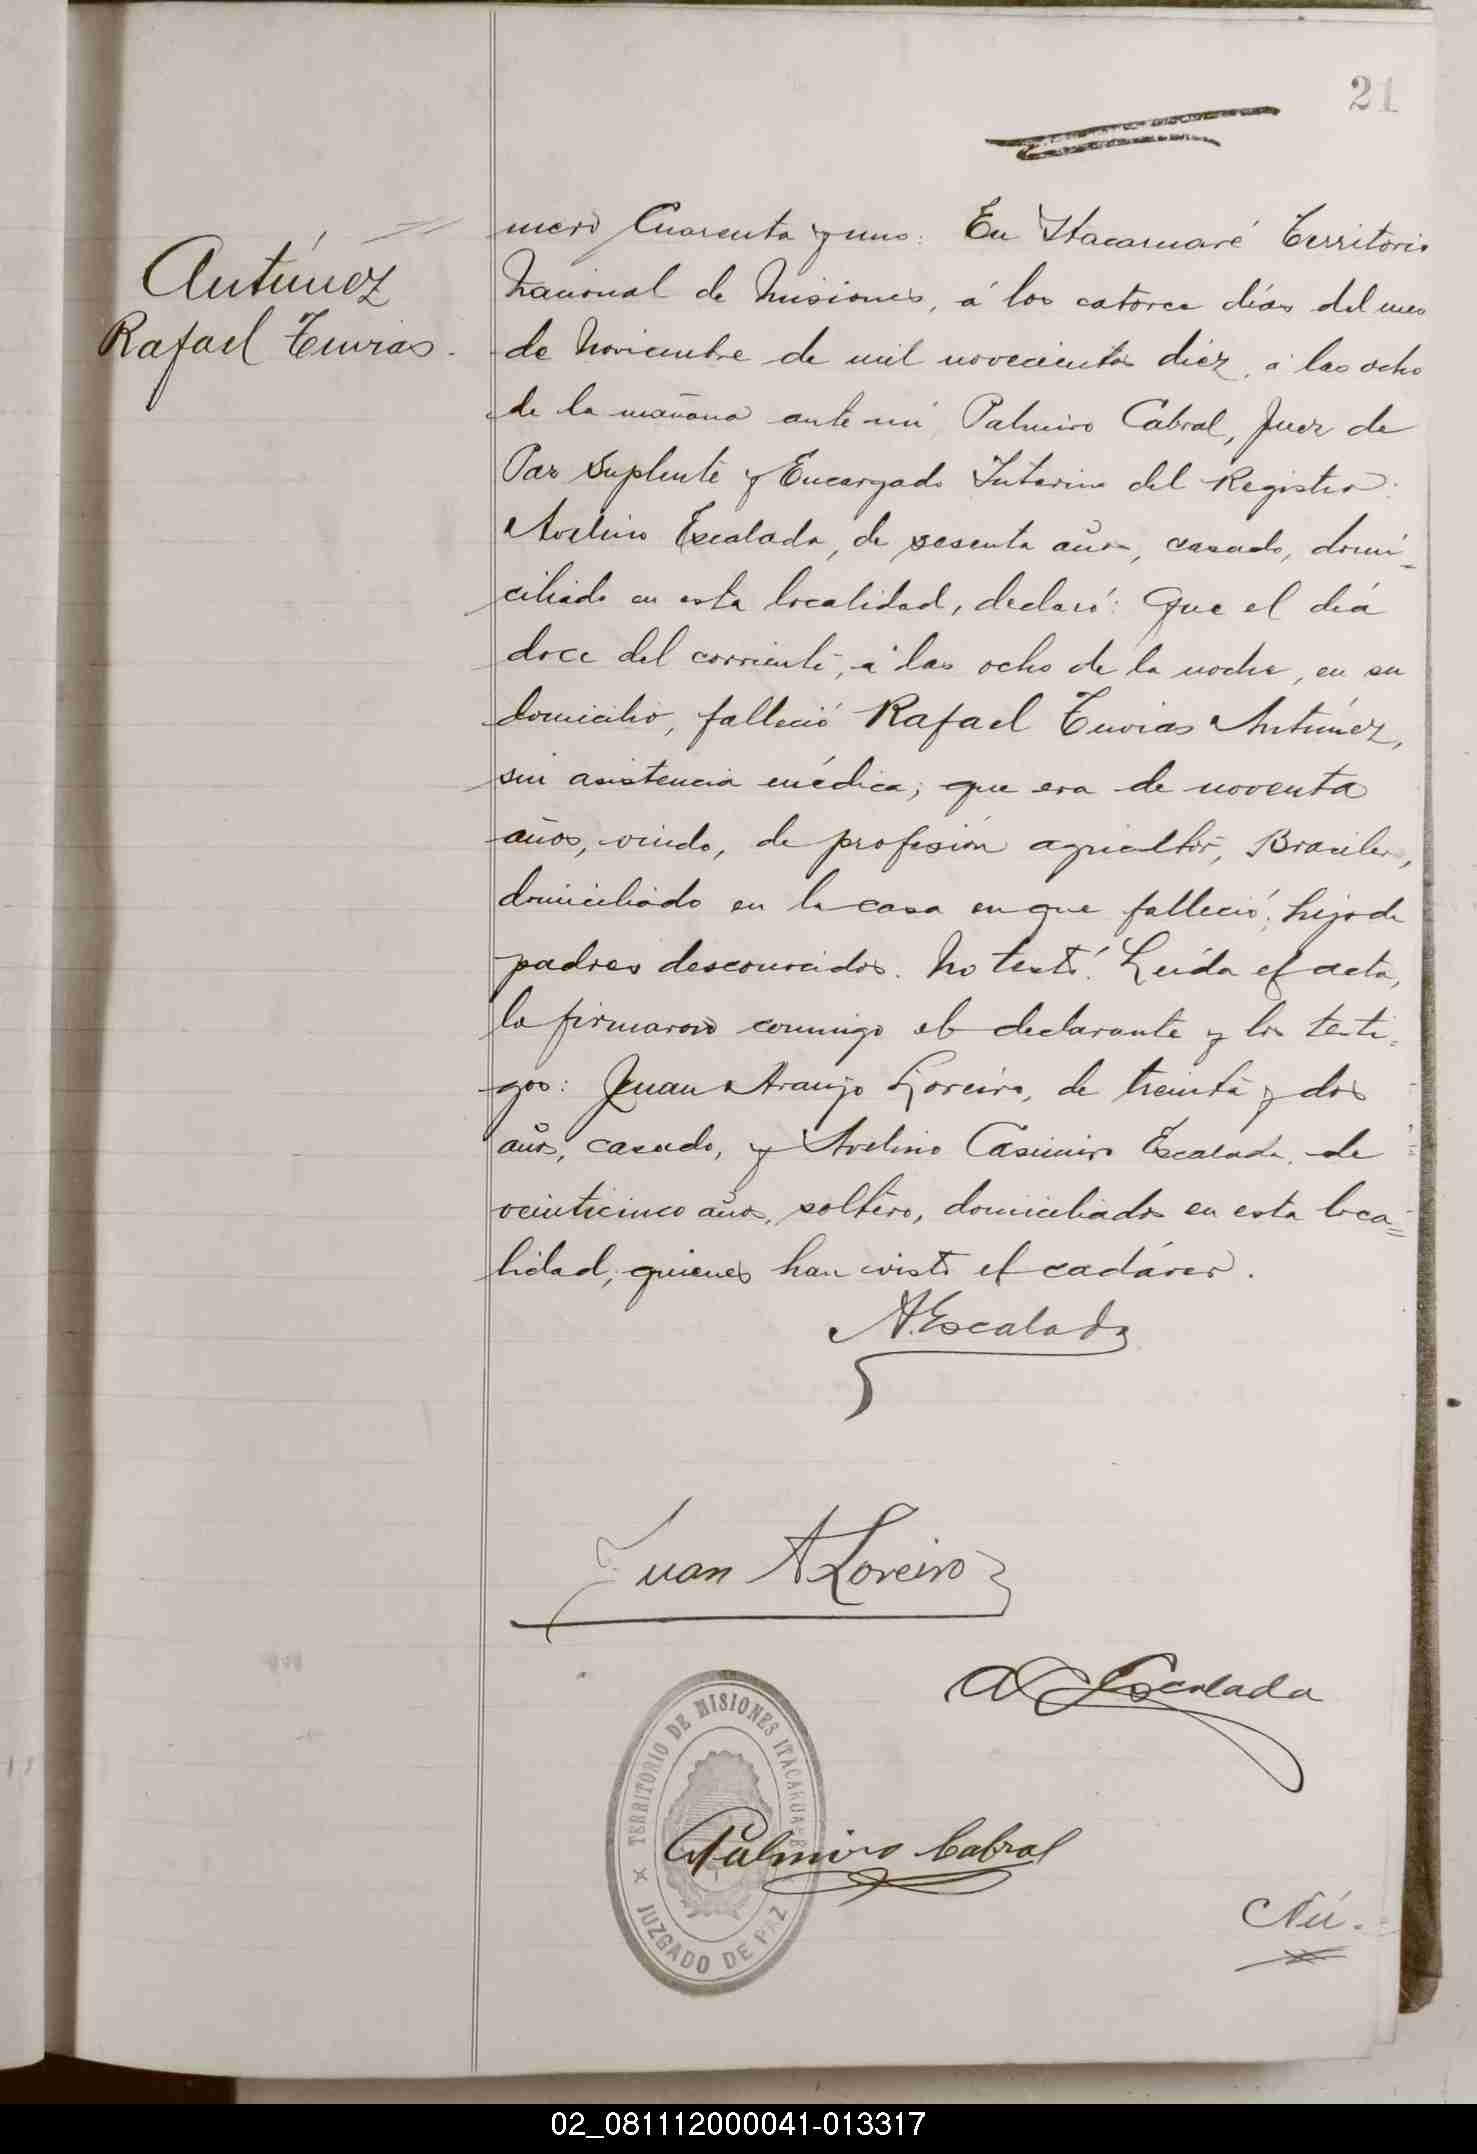 21
Antúnez
Rafael Tuvias.
mero Cuarenta y uno: En Itacaruaré Territorio
Nacional de Misiones, á los catorce días del mes
de Noviembre de mil novecientos diéz, á las ocho
de la mañana ante mí Palmiro Cabral, Juez de
Paz Suplente y Encargado Interino del Registro:
Avelino Escalada, de sesenta años, casado, domi-
ciliado en esta localidad, declaró: Que el día
doce del corriente, á las ocho de la noche, en su
domicilio, falleció Rafael Tuvias Antúnez,
sin asistencia médica; que era de noventa
años, viudo, de profesión agricultor, Brasilero,
domiciliado en la casa en que falleció; hijo de
padres desconocidos. No testó. Leída el acta,
la firmaron conmigo el declarante y los testi-
gos: Juan Araujo Loreiro, de treinta y dos
años, casado, y Avelino Casimiro Escalada, de
veinticinco años, soltero, domiciliados en esta loca=
lidad, quienes han visto el cadáver.
A. Escalada
Juan A Loreiro
A C Escalada
TERRITORIO DE MISIONES ITACARUARÉ
JUZGADO DE PAZ
Palmiro Cabral
Nú-
02_081112000041-013317